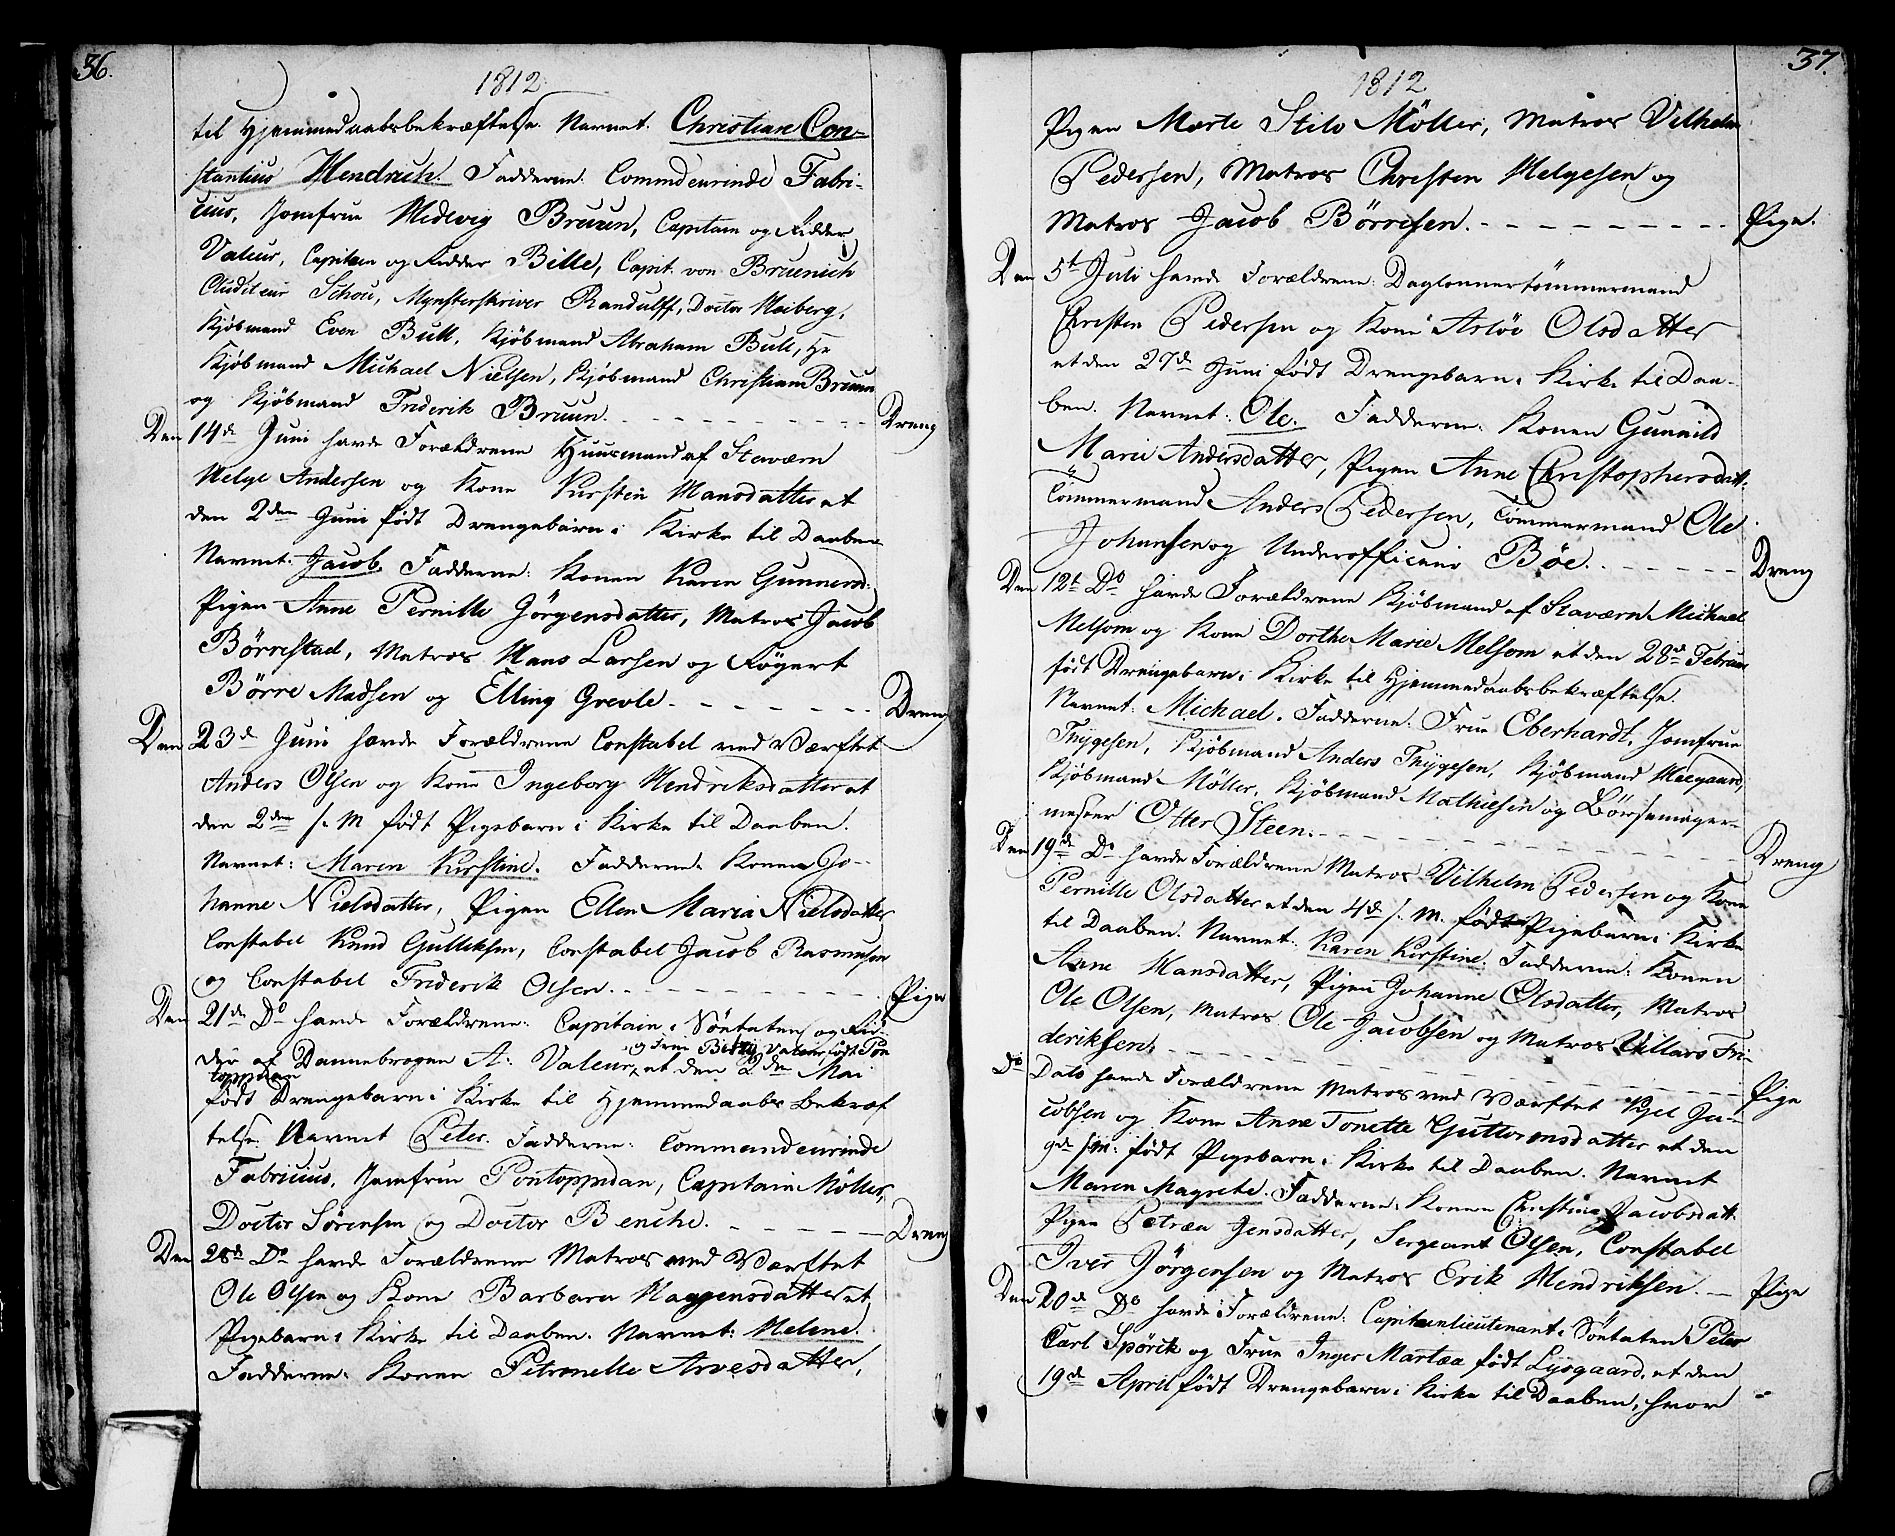 36.
1812
til Hjemmedaabsbekræftelse. Navnet. Christiane Con-
stantius Hendrich. Fadderne. Commdeurinde Fabri-
cius, Jomfrue Hedevig Bruun, Capitain og Ridder
Valeur, Capitain og Ridder Bille, Capit. von Bruenich
Auditeur Schou, Mynsterskriver Randulff, Doctor Heiberg,
Kjöbmand Even Bull, Kjöbmand Abraham Bull, Hr
Kjöbmand Michael Nielsen, Kjöbmand Christian Bruun
og Kjöbmand Frederik Bruun. Dreng
Den 14de Juni havde Forældrene Huusmand af Staværn
Helge Andersen og Kone Kirsten Hansdatter et
den 2den Juni født Drengebarn i Kirke til Daaben
Navnet. Jacob Fadderne: Konen Karen Gunnersd:
Pigen Anne Pernille Jörgensdatter, Matros Jacob
Börrestad, Matros Hans Larsen og
Börre Madsen og Elling Grevle. Dreng
Den 23de Juni havde Forældrene Constabel ved Værftet
Anders Olsen og Kone Ingeborg Hendriksdatter et
den 2den s. M født Pigebarn i Kirke til Daaben.
Navnet: Maren Kirstine. Fadderne. Konen Jo-
hanne Nielsdatter, Pigen Ellen Maria Nielsdatter
Constabel Knud Gulliksen, Constabel Jacob Rasmusen
og Constabel Frederik Olsen. Pige
Den 21de Do havde Forældrene: Capitain i Söetaten og Rid-
der af Dannebrogen A: Valeur, og Frue Valeur født Pon
toppidan et den 2den Mai
født Drengebarn i Kirke til Hjemmedaabs Bekræf
telse. Navnet Peter. Fadderne: Commandeurinde
Fabricius, Jomfrue Pontoppidan, Capitain Möller,
Doctor Sörensen og Doctor Benche. Dreng
Den 28de Do havde Forældrene Matros ved Værftet
Ole Olsen og Kone Barbara Haagensdatter et
Pigebarn i Kirke til Daaben. Navnet: Helene.
Fadderne: Konen Petronelle Arvesdatter,
37.
1812
Pigen Marte Stilo Möller, Matros Vilhelm
Pedersen, Matros Christen Helgesen og
Matros Jacob Börresen. Pige.
Den 5t Juli havde Forældrene: Daglönnertömmermand
Christen Pedersen og Kone Aslöv Olsdatter
et den 27de Juni født Drengebarn i Kirke til Daa-
ben. Navnet: Ole. Fadderne: Konen Gunnild
Marie Andersdatter, Pigen Anne Christophersdatt:
Tömmermand Anders Pedersen, Tömmermand Ole
Johansen og Underofficeer Böe. Dreng
Den 12t Do havde Forældrene Kjöbmand af Staværn Michael
Melsom og Kone Dorthe Marie Melsom et den 28de Februar
født Drengebarn i Kirke til Hjemmedaabsbekræftelse.
Navnet: Michael. Fadderne: Frue Eberhardt, Jomfrue
Thygesen, Kjöbmand Anders Thygesen, Kjöbmand Heegaard,
Kjöbmand Möller, Kjöbmand Mathiesen og Börsemager-
mester Otter Steen. Dreng
Den 19de Do havde Forældrene Matros Vilhelm Pedersen og Kone
Pernille Olsdatter et den 4de s. M. født Pigebarn i Kirke
til Daaben. Navnet: Karen Kirstine. Fadderne: Konen
Anne Hansdatter, Pigen Johanne Olsdatter, Matros
Ole Olsen, Matros Ole Jacobsen og Matros Villars Fri-
deriksen. Pige
Do Dato havde Forældrene Matros ved Værftet Kjel Ja-
cobsen og Kone Anne Tonette Guttormsdatter et den
9de s. M. født Pigebarn i Kirke til Daaben. Navnet
Maren Magrete. Fadderne: Konen Christine Jacobsdatt.
Pigen Petræa Jensdatter, Sergeant Olsen, Constabel
Iver Jörgensen og Matros Erik Hendriksen. Pige
Den 20de Do havde Forældrene: Capitainlieutenant i Söetaten Peter
Carl Spörck og Frue Inger Martæa født Lysgaard, et den
19de April født Drengebarn i Kirke til Daaben, hvor